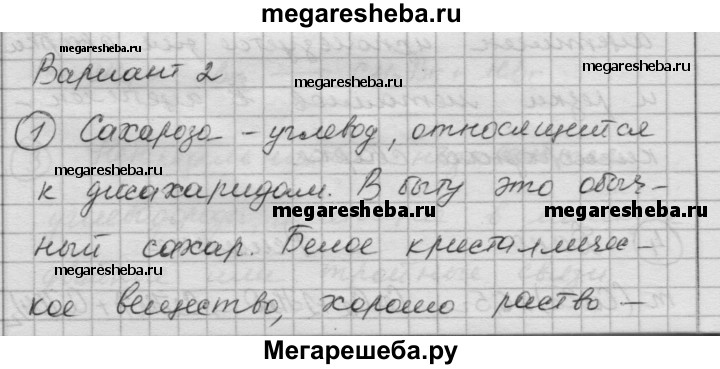 megaresheba.ru
megaresheba.ru megaresheba.ru
Вариант 2 megaresheba.ru
① Сахароза – углевод, относящийся
megaresheba.ru
к дисахаридам. В быту это обыч-
megaresheba.ru megaresheba.ru
ный сахар. Белое кристалличес-
megaresheba.ru
кое вещество, хорошо раство-
Мегарешеба.ру